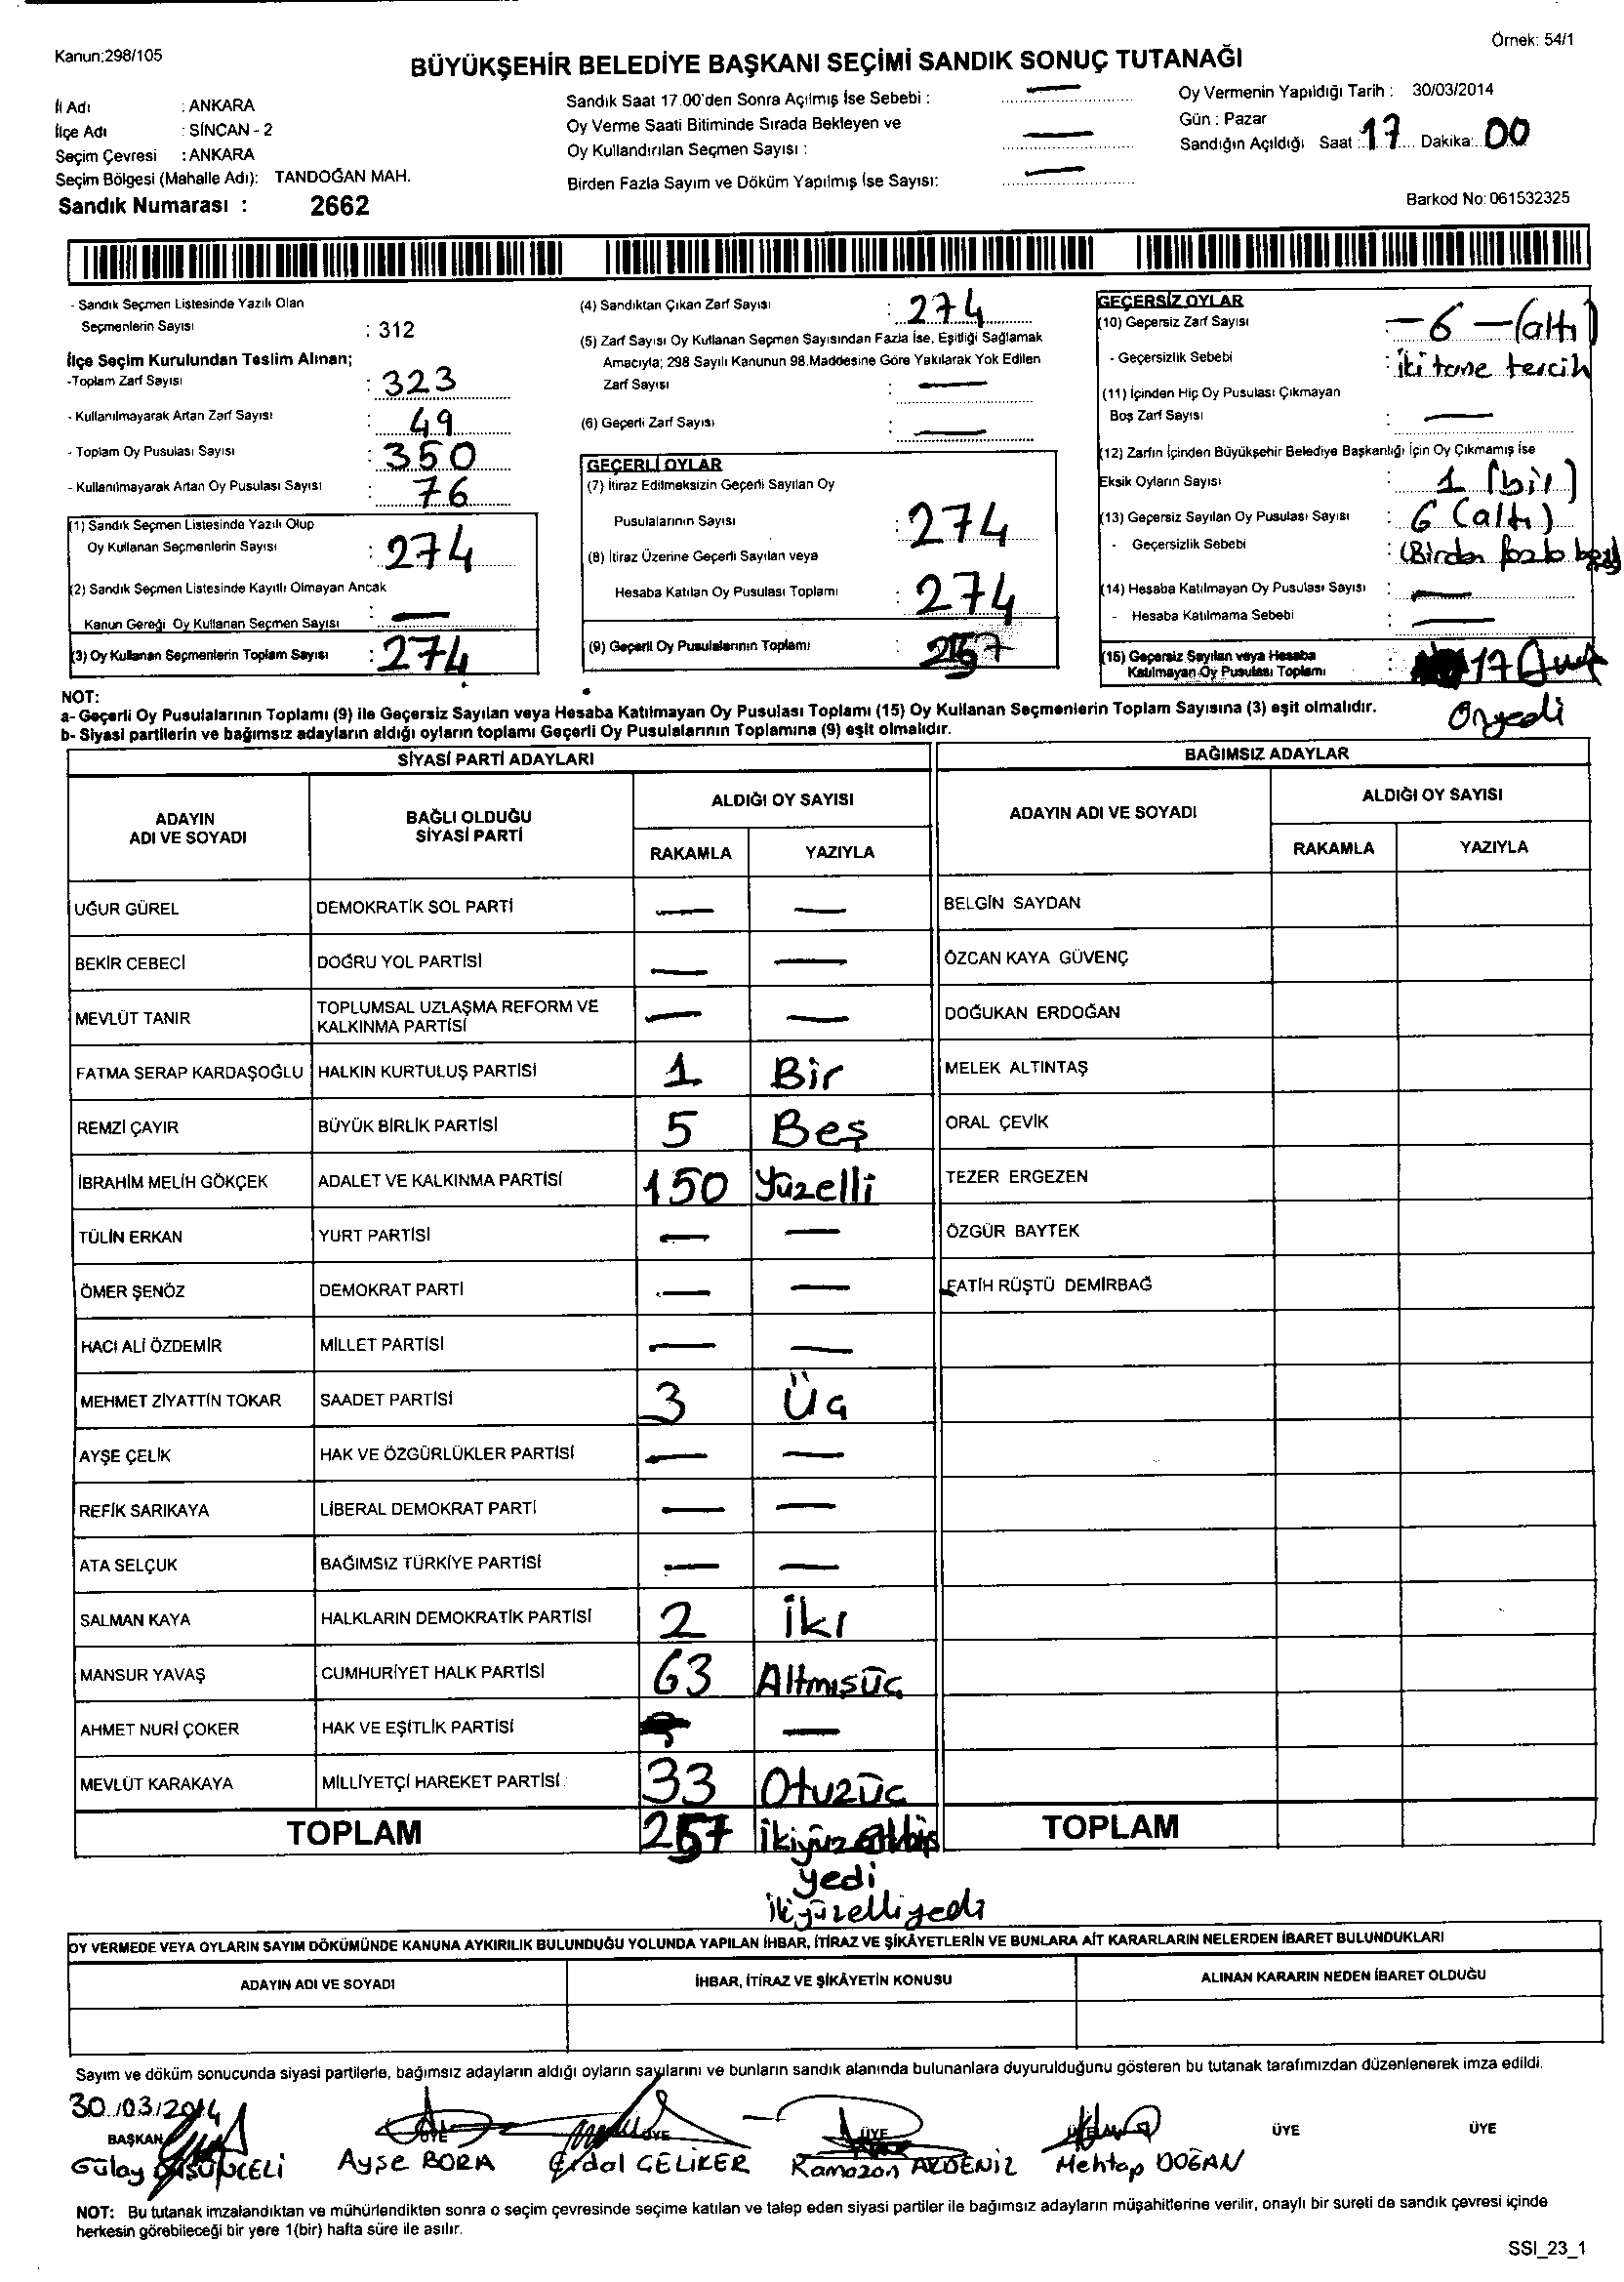 Kanun:298/105
Örnek: 54/1
BÜYÜKŞEHİR BELEDİYE BAŞKANI SEÇİMİ SANDIK SONUÇ TUTANAĞI
İl Adı : ANKARA
İlçe Adı : SİNCAN - 2
Seçim Çevresi : ANKARA
Seçim Bölgesi (Mahalle Adı): TANDOĞAN MAH.
Sandık Numarası : 2662
Sandık Saat 17.00'den Sonra Açılmış İse Sebebi : —
Oy Verme Saati Bitiminde Sırada Bekleyen ve
Oy Kullandırılan Seçmen Sayısı : —
Birden Fazla Sayım ve Döküm Yapılmış İse Sayısı: —
Oy Vermenin Yapıldığı Tarih : 30/03/2014
Gün : Pazar
Sandığın Açıldığı Saat : 17 Dakika: 00
Barkod No: 061532325
- Sandık Seçmen Listesinde Yazılı Olan
Seçmenlerin Sayısı : 312
İlçe Seçim Kurulundan Teslim Alınan;
-Toplam Zarf Sayısı : 323
- Kullanılmayarak Artan Zarf Sayısı : 49
- Toplam Oy Pusulası Sayısı : 350
- Kullanılmayarak Artan Oy Pusulası Sayısı : 76
(1) Sandık Seçmen Listesinde Yazılı Olup
Oy Kullanan Seçmenlerin Sayısı : 274
(2) Sandık Seçmen Listesinde Kayıtlı Olmayan Ancak
Kanun Gereği Oy Kullanan Seçmen Sayısı : —
(3) Oy Kullanan Seçmenlerin Toplam Sayısı : 274
(4) Sandıktan Çıkan Zarf Sayısı : 274
(5) Zarf Sayısı Oy Kullanan Seçmen Sayısından Fazla İse, Eşitliği Sağlamak
Amacıyla; 298 Sayılı Kanunun 98.Maddesine Göre Yakılarak Yok Edilen
Zarf Sayısı : —
(6) Geçerli Zarf Sayısı : —
GEÇERLİ OYLAR
(7) İtiraz Edilmeksizin Geçerli Sayılan Oy
Pusulalarının Sayısı : 274
(8) İtiraz Üzerine Geçerli Sayılan veya
Hesaba Katılan Oy Pusulası Toplamı : 274
(9) Geçerli Oy Pusulalarının Toplamı : 257
GEÇERSİZ OYLAR
(10) Geçersiz Zarf Sayısı : —6—(altı)
- Geçersizlik Sebebi : iki tane tercih
(11) İçinden Hiç Oy Pusulası Çıkmayan
Boş Zarf Sayısı : —
(12) Zarfın İçinden Büyükşehir Belediye Başkanlığı İçin Oy Çıkmamış İse
Eksik Oyların Sayısı : 1 (bir)
(13) Geçersiz Sayılan Oy Pusulası Sayısı : 6 (altı)
- Geçersizlik Sebebi : (Birden fazla
(14) Hesaba Katılmayan Oy Pusulası Sayısı : —
- Hesaba Katılmama Sebebi : —
(15) Geçersiz Sayılan veya Hesaba
Katılmayan Oy Pusulası Toplamı : 17
Onyedi
NOT:
a- Geçerli Oy Pusulalarının Toplamı (9) ile Geçersiz Sayılan veya Hesaba Katılmayan Oy Pusulası Toplamı (15) Oy Kullanan Seçmenlerin Toplam Sayısına (3) eşit olmalıdır.
b- Siyasi partilerin ve bağımsız adayların aldığı oyların toplamı Geçerli Oy Pusulalarının Toplamına (9) eşit olmalıdır.
SİYASİ PARTİ ADAYLARI BAĞIMSIZ ADAYLAR
ADAYIN ADI VE SOYADI BAĞLI OLDUĞU SİYASİ PARTİ ALDIĞI OY SAYISI ADAYIN ADI VE SOYADI ALDIĞI OY SAYISI
RAKAMLA YAZIYLA RAKAMLA YAZIYLA
UĞUR GÜREL DEMOKRATİK SOL PARTİ — — BELGİN SAYDAN
BEKİR CEBECİ DOĞRU YOL PARTİSİ — — ÖZCAN KAYA GÜVENÇ
MEVLÜT TANIR TOPLUMSAL UZLAŞMA REFORM VE KALKINMA PARTİSİ — — DOĞUKAN ERDOĞAN
FATMA SERAP KARDAŞOĞLU HALKIN KURTULUŞ PARTİSİ 1 Bir MELEK ALTINTAŞ
REMZİ ÇAYIR BÜYÜK BİRLİK PARTİSİ 5 Beş ORAL ÇEVİK
İBRAHİM MELİH GÖKÇEK ADALET VE KALKINMA PARTİSİ 150 Yüzelli TEZER ERGEZEN
TÜLİN ERKAN YURT PARTİSİ — — ÖZGÜR BAYTEK
ÖMER ŞENÖZ DEMOKRAT PARTİ — — FATİH RÜŞTÜ DEMİRBAĞ
HACI ALİ ÖZDEMİR MİLLET PARTİSİ — —
MEHMET ZİYATTİN TOKAR SAADET PARTİSİ 3 Üç
AYŞE ÇELİK HAK VE ÖZGÜRLÜKLER PARTİSİ — —
REFİK SARIKAYA LİBERAL DEMOKRAT PARTİ — —
ATA SELÇUK BAĞIMSIZ TÜRKİYE PARTİSİ — —
SALMAN KAYA HALKLARIN DEMOKRATİK PARTİSİ 2 İki
MANSUR YAVAŞ CUMHURİYET HALK PARTİSİ 63 Altmısüç
AHMET NURİ ÇOKER HAK VE EŞİTLİK PARTİSİ —
MEVLÜT KARAKAYA MİLLİYETÇİ HAREKET PARTİSİ 33 Otuzüç
TOPLAM 257 İkiyüz TOPLAM
yedi
ikiyüzelliyedi
OY VERMEDE VEYA OYLARIN SAYIM DÖKÜMÜNDE KANUNA AYKIRILIK BULUNDUĞU YOLUNDA YAPILAN İHBAR, İTİRAZ VE ŞİKÂYETLERİN VE BUNLARA AİT KARARLARIN NELERDEN İBARET BULUNDUKLARI
ADAYIN ADI VE SOYADI İHBAR, İTİRAZ VE ŞİKÂYETİN KONUSU ALINAN KARARIN NEDEN İBARET OLDUĞU
Sayım ve döküm sonucunda siyasi partilerle, bağımsız adayların aldığı oyların sayılarını ve bunların sandık alanında bulunanlara duyurulduğunu gösteren bu tutanak tarafımızdan düzenlenerek imza edildi.
30/03/2014
BAŞKAN ÜYE ÜYE ÜYE ÜYE ÜYE ÜYE
Gülay Ayşe BORA Erdal ÇELİKER Ramazan AKDENİZ Mehtap DOĞAN
NOT: Bu tutanak imzalandıktan ve mühürlendikten sonra o seçim çevresinde seçime katılan ve talep eden siyasi partiler ile bağımsız adayların müşahitlerine verilir, onaylı bir sureti de sandık çevresi içinde
herkesin görebileceği bir yere 1(bir) hafta süre ile asılır.
SSI_23_1